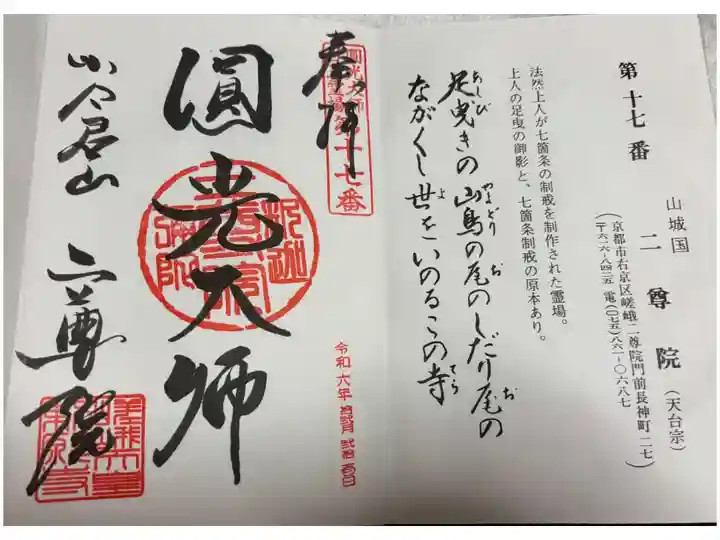 第十七番
山城国
二尊院(天台宗)
(京都市右京区嵯峨二尊院門前長神町二七)
(〒六一六―八四二五 電(〇七五)八六一―〇六八七
法然上人が七箇条の制戒を制作された霊場。
上人の足曳の御影と、七箇条制戒の原本あり。
足曳きの山鳥の尾のしだり尾の
あしび やまどり お お
ながくし世をいのるこの寺
よ てら
奉拝
圓光大師
第十七番
圓光大師
令和六年
小倉山 二尊院